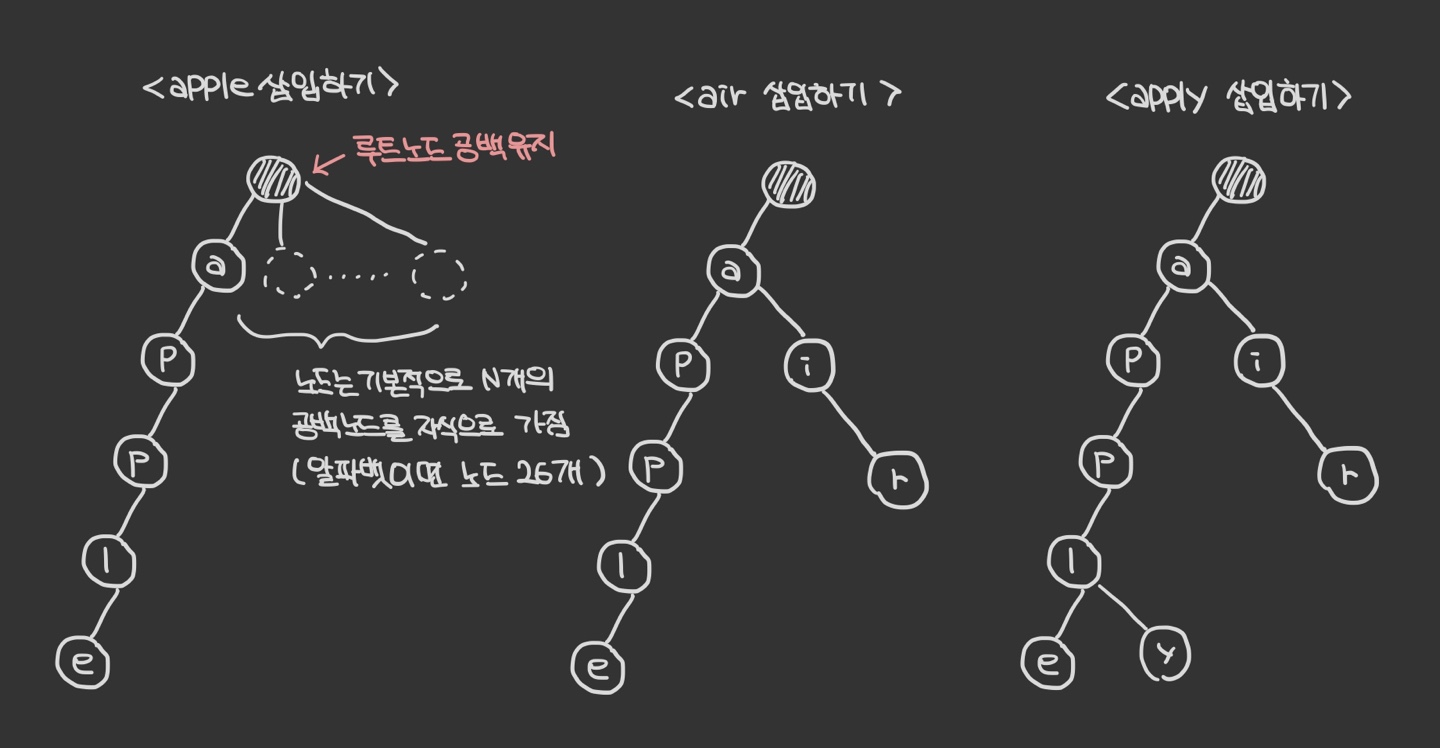 <apple 삽입하기>
루트노드 공백유지
a
P
P
l
e
노드는 기본적으로 N개의
공백노드를 자식으로 가짐
(알파벳이면 노드 26개)
<air 삽입하기>
a
P
i
P
r
l
e
<apply 삽입하기>
a
P
i
P
r
l
e
y